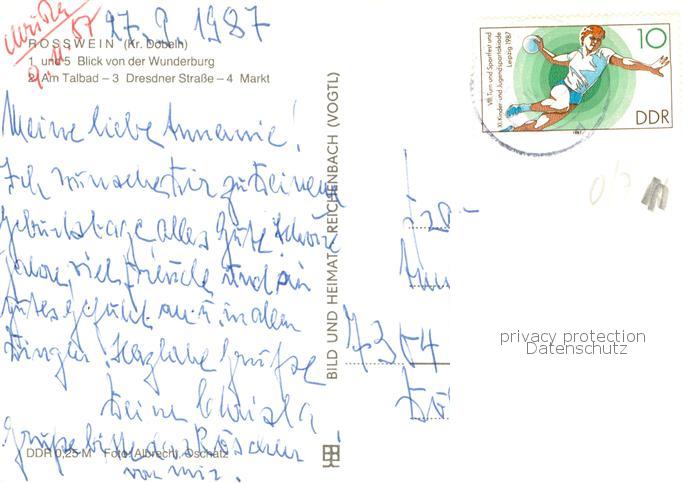 27.9.1987
ROSSWEIN (Kr. Döbeln)
1 und 5 Blick von der Wunderburg
2 Am Talbad – 3 Dresdner Straße – 4 Markt
Meine liebe Annemie!
Ich wünsche Dir zu Deinem
Geburtstage alles Gute! Schöne
Jahre, viel Freude und ein
gutes Gefühl an u. in allen
Dingen! Herzliche Grüße
Deine Christa
Grüße bitte das Röschen
von mir.
DDR 0,25 M Foto: Albrecht, Oschatz
BILD UND HEIMAT REICHENBACH (VOGTL)
VIII. Turn- und Sportfest und
XI. Kinder- und Jugendspartakiade
Leipzig 1987
10
DDR
1987
7304
Dö
privacy protection
Datenschutz